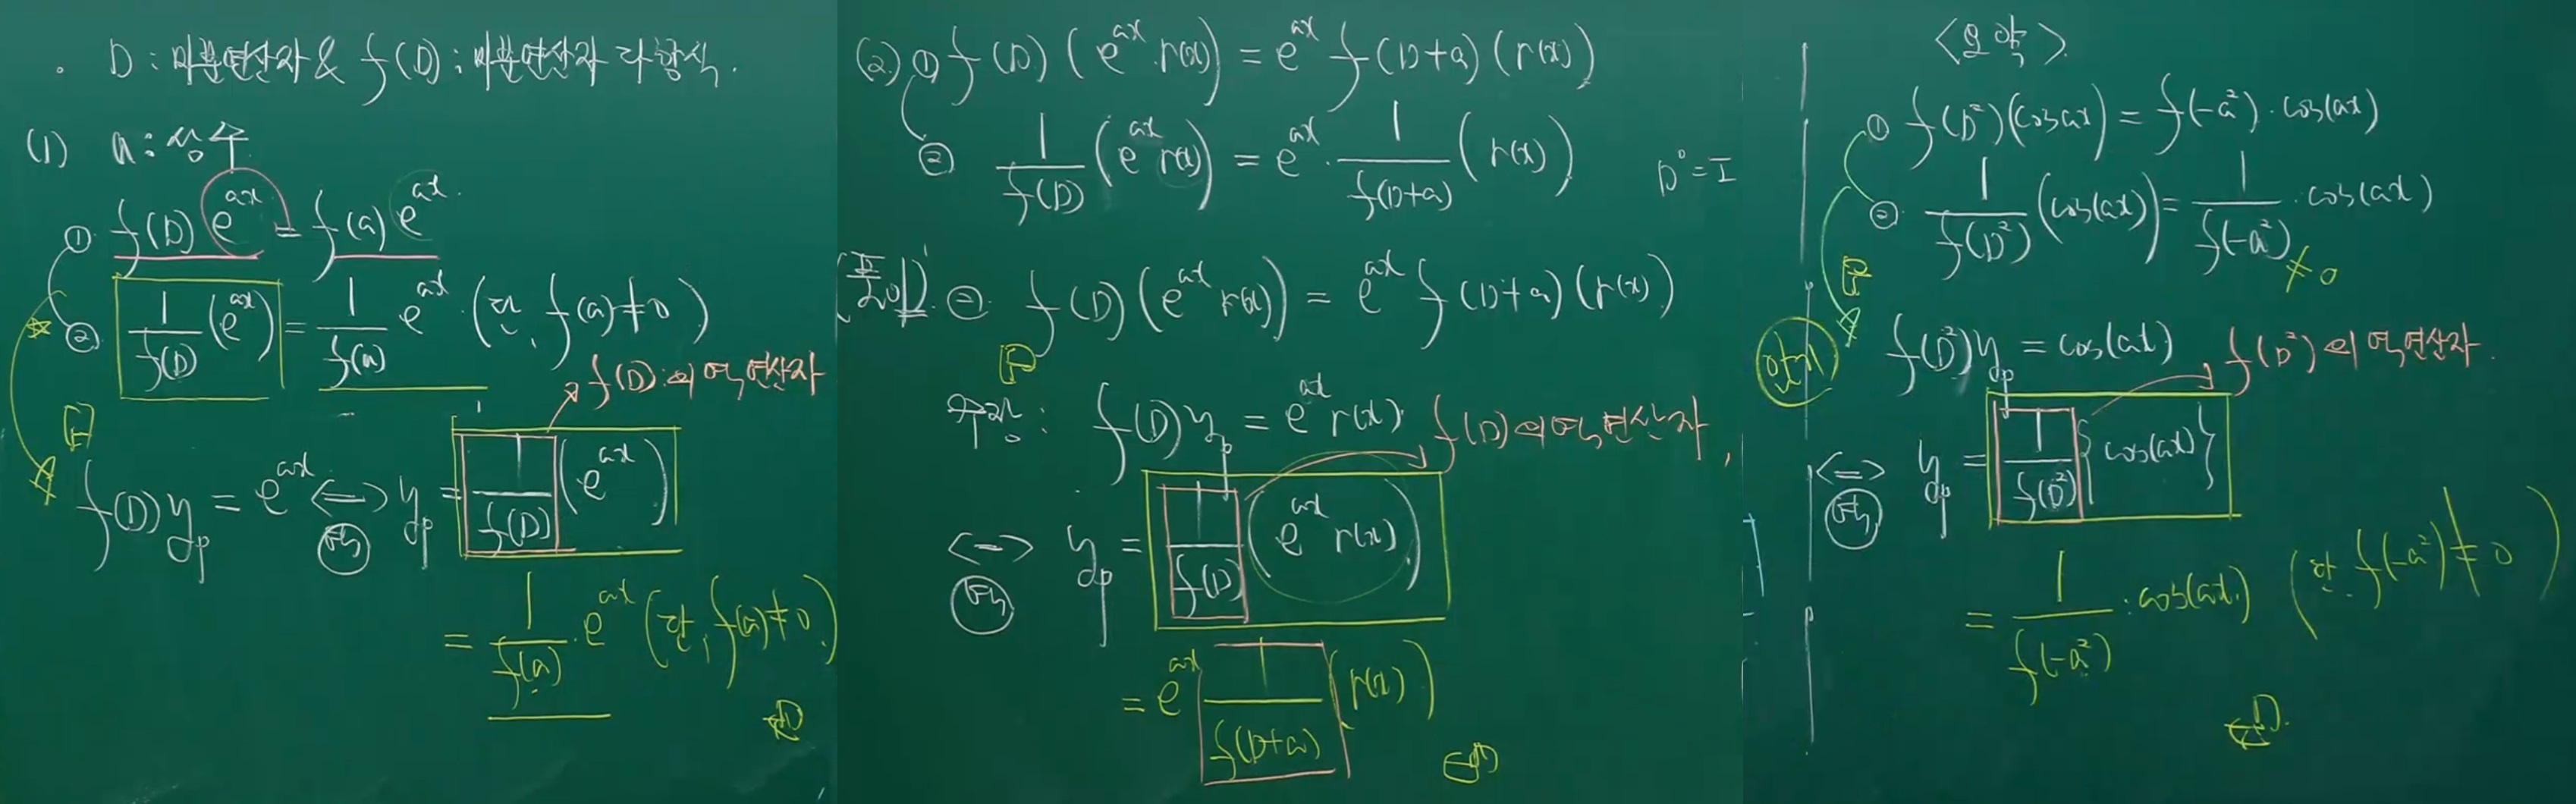 . D : 미분연산자 & f(D) : 미분연산자 다항식.
(1) a : 상수
① f(D) e^{ax} = f(a) e^{ax}.
② 1/f(D) (e^{ax}) = 1/f(a) e^{ax} · (단, f(a) ≠ 0)
f(D)의 역연산자
f(D) y_p = e^{ax} <=> y_p = 1/f(D) (e^{ax})
= 1/f(a) · e^{ax} (단, f(a) ≠ 0.)
(2) ① f(D) (e^{ax} · r(x)) = e^{ax} f(D+a) (r(x))
② 1/f(D) (e^{ax} r(x)) = e^{ax} · 1/f(D+a) (r(x))
D^0 = I
(풀이) ② f(D) (e^{ax} r(x)) = e^{ax} f(D+a) (r(x))
f(D) y_p = e^{ax} r(x)
f(D)의 역연산자,
<=> y_p = 1/f(D) (e^{ax} r(x))
= e^{ax} 1/f(D+a) (r(x))
<요약>
① f(D²) (cos ax) = f(-a²) · cos(ax)
② 1/f(D²) (cos(ax)) = 1/f(-a²) · cos(ax)
≠ 0
암기
f(D²) y_p = cos(ax)
f(D²)의 역연산자.
<=> y_p = 1/f(D²) {cos(ax)}
= 1/f(-a²) · cos(ax) (단. f(-a²) ≠ 0)